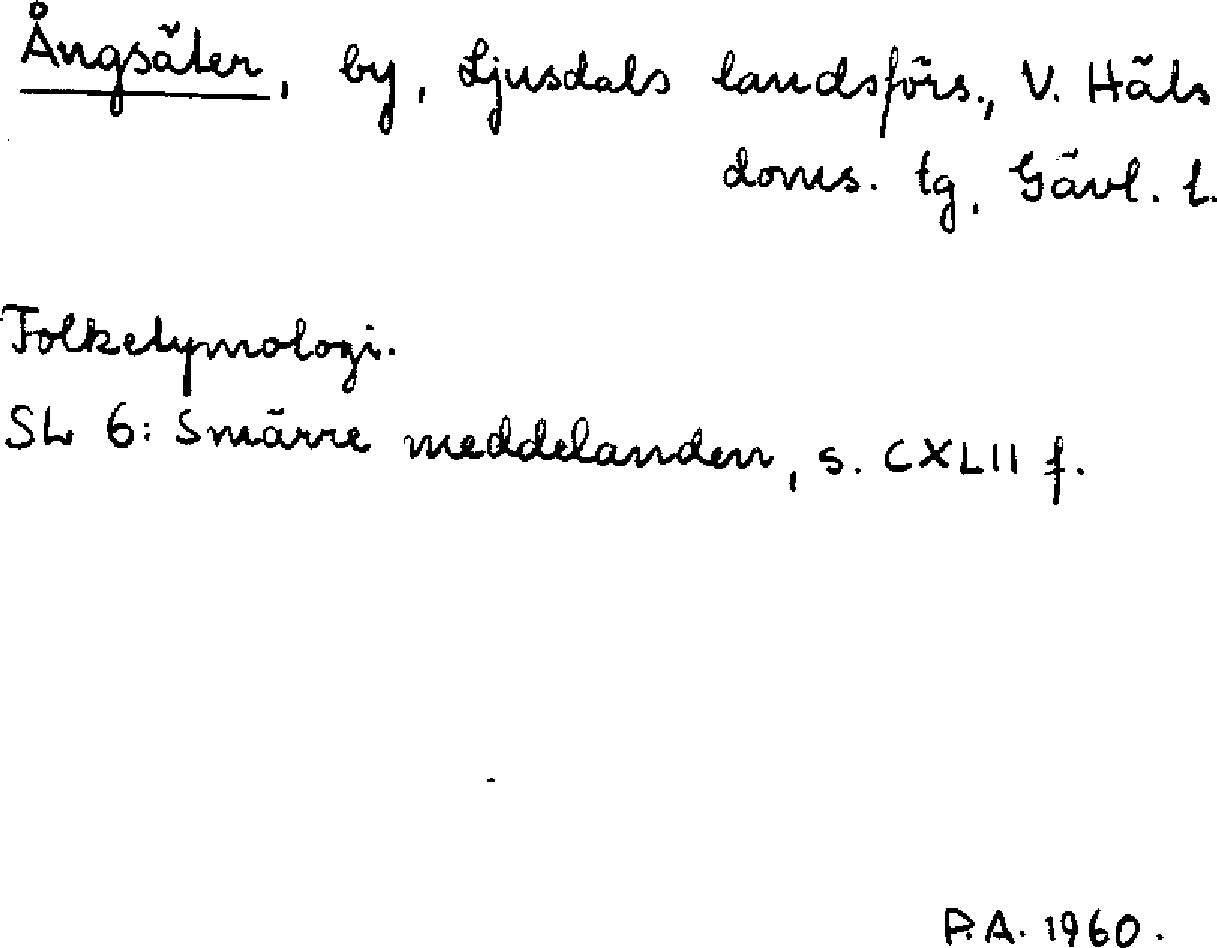 Ångsäter, by, Ljusdals landsförs., V. Häls
doms. tg, Gävl. l.
Folketymologi.
SL 6: Smärre meddelanden, s. CXLII f.
P.A. 1960.